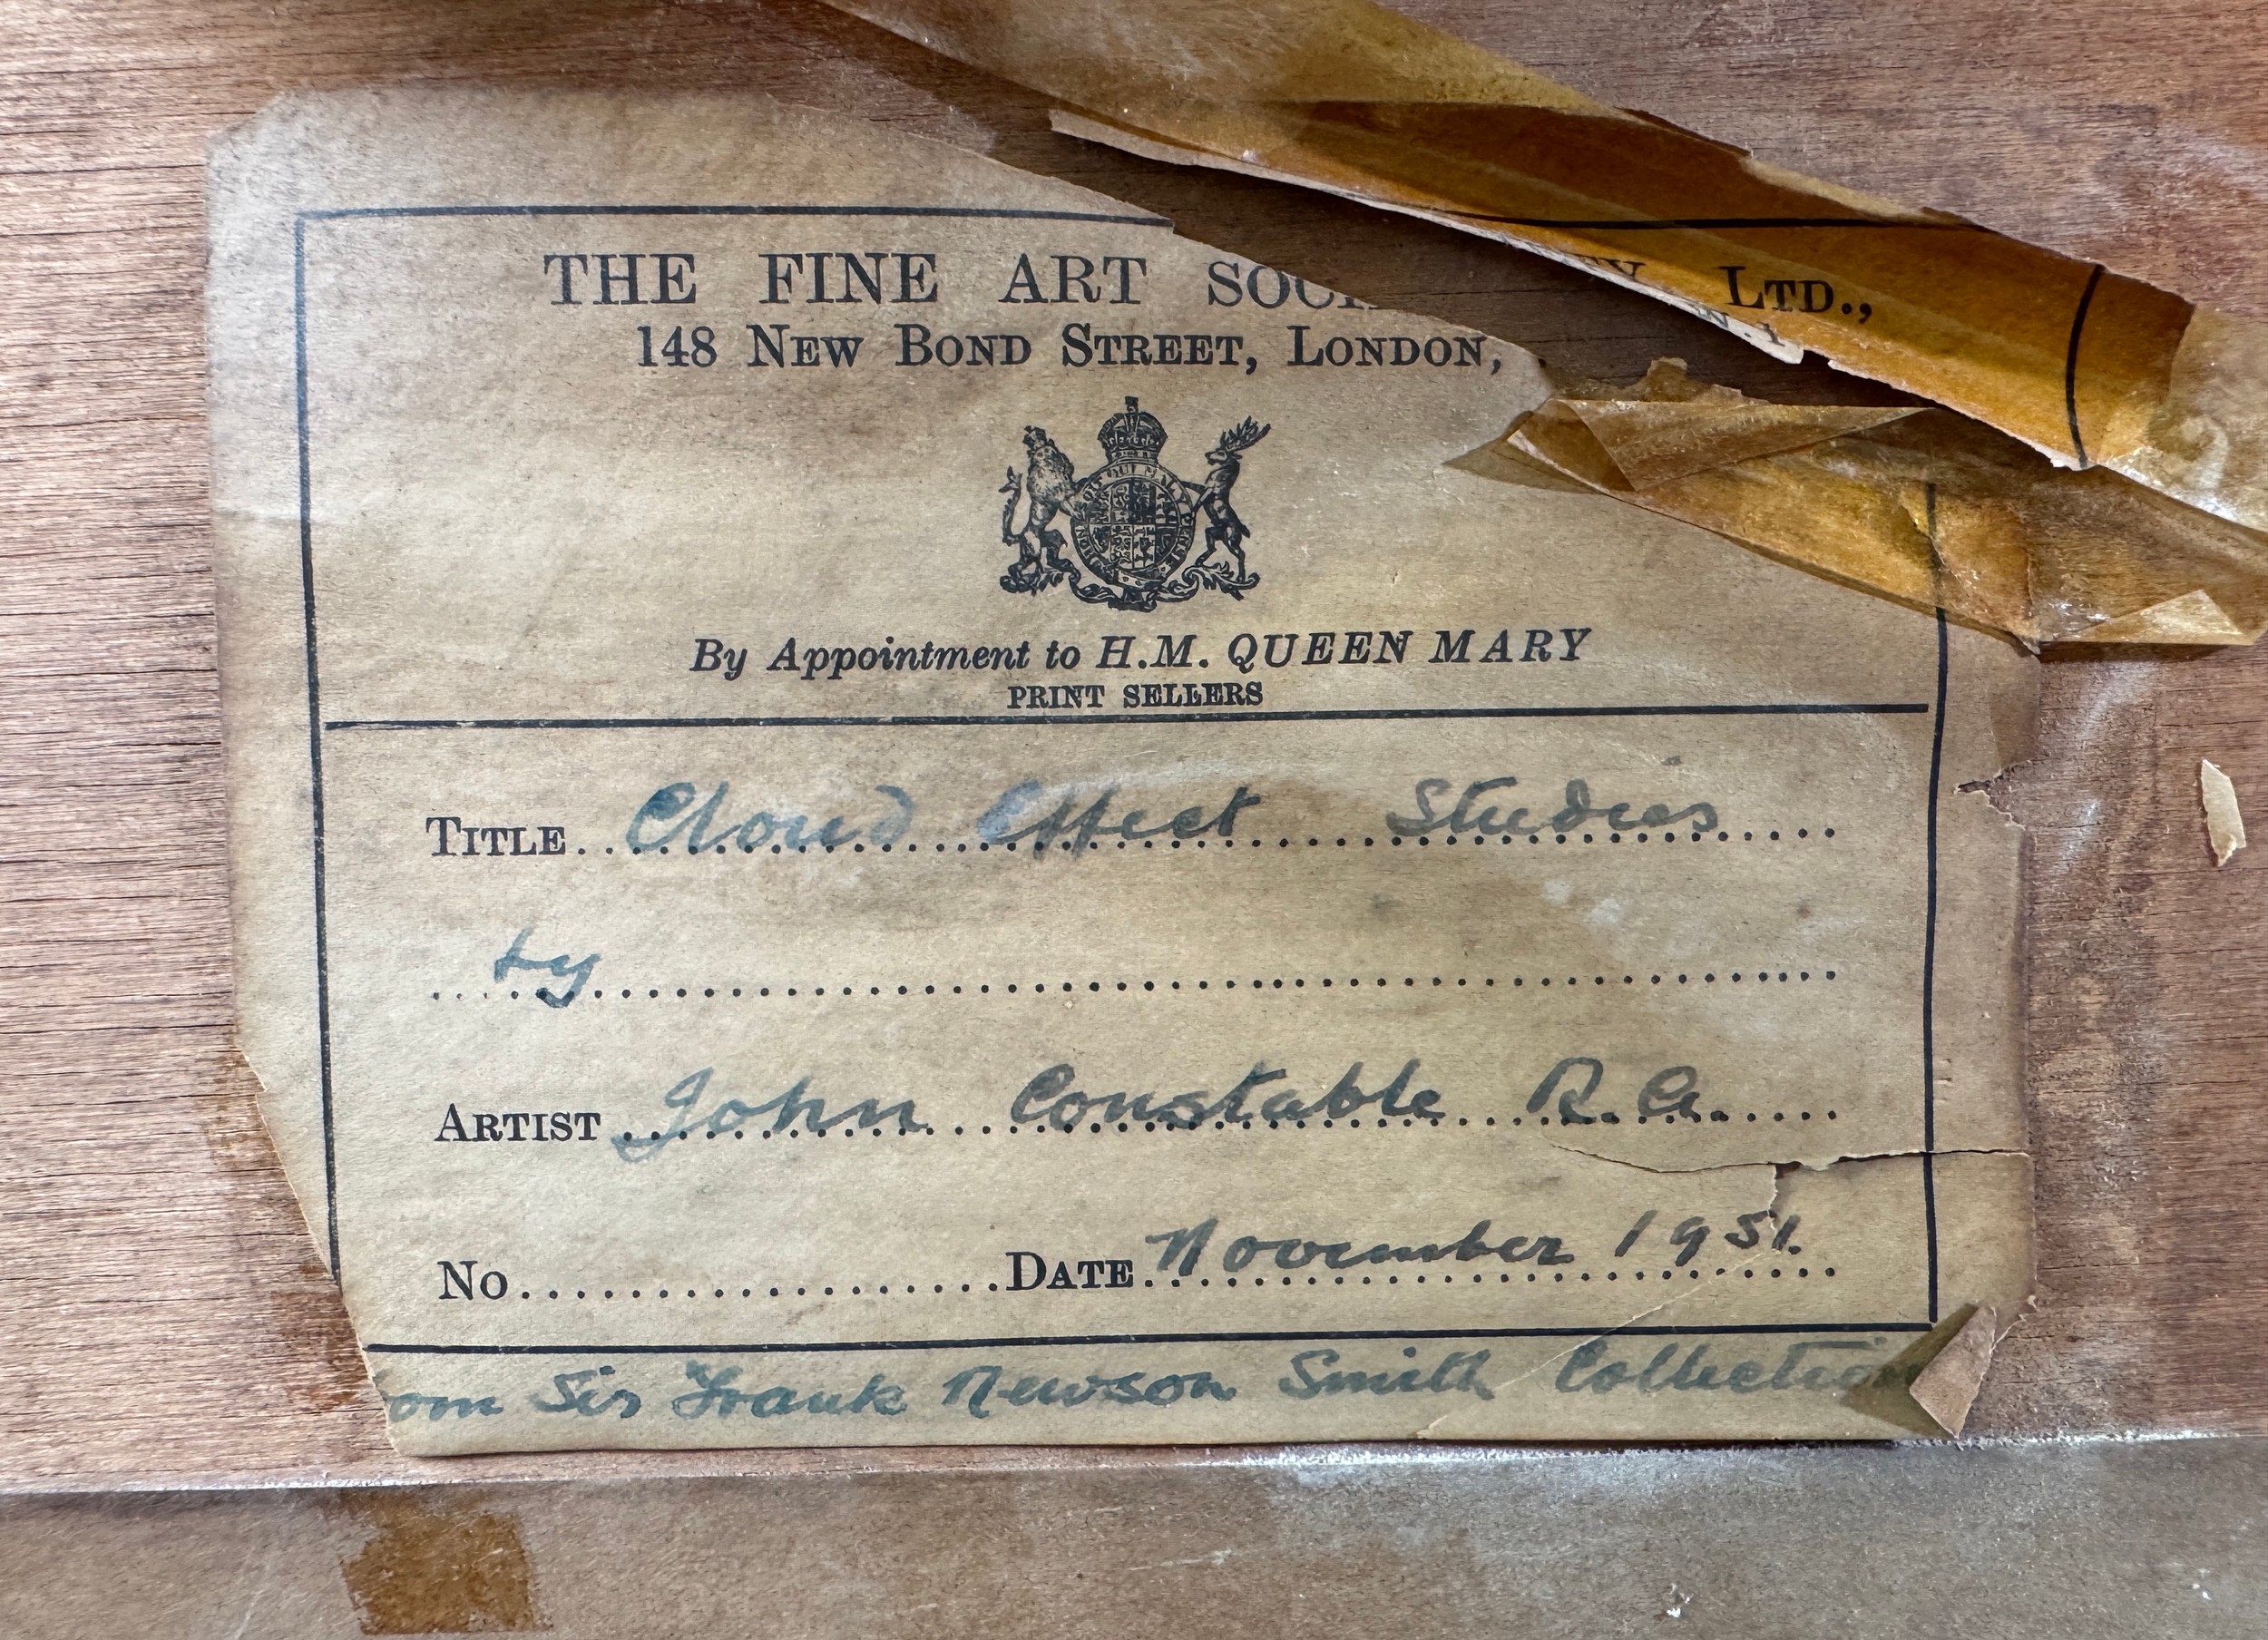 THE FINE ART SOCIETY LTD.,
148 NEW BOND STREET, LONDON, W.1
By Appointment to H.M. QUEEN MARY
PRINT SELLERS
TITLE Cloud Effect Studies
by
ARTIST John Constable R.A.
No. DATE November 1951.
om Sir Frank Newson Smith Collection